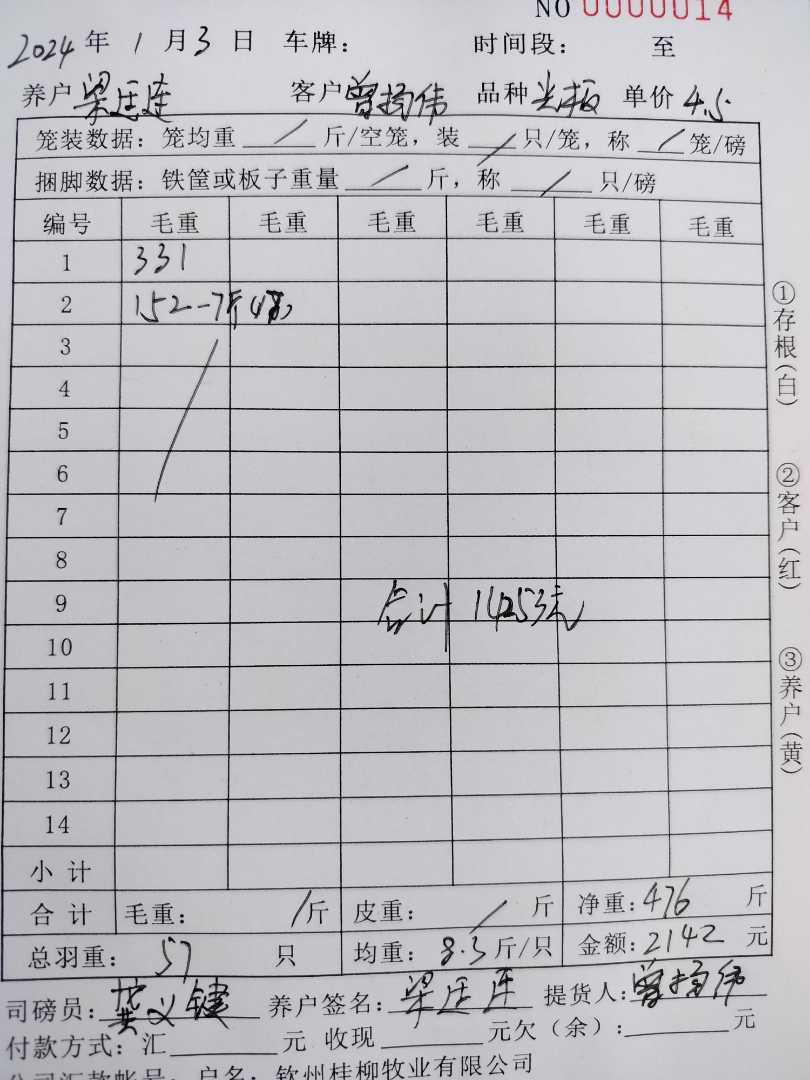 NO 0000014
2024 年 1 月 3 日 车牌： 时间段： 至
养户 梁廷连 客户 曾扬伟 品种 光板 单价 4.5
笼装数据：笼均重 / 斤/空笼，装 / 只/笼，称 / 笼/磅
捆脚数据：铁筐或板子重量 / 斤，称 / 只/磅
编号 毛重 毛重 毛重 毛重 毛重 毛重
1 331
2 152-7斤
3
4
5
6
7
8
9 合计 14253元
10
11
12
13
14
小 计
合 计 毛重： / 斤 皮重： / 斤 净重：476 斤
总羽重： 57 只 均重：8.3 斤/只 金额：2142 元
司磅员：龚义键 养户签名：梁廷连 提货人：曾扬伟
付款方式：汇 元 收现 元欠（余）： 元
公司汇款帐号：户名：钦州桂柳牧业有限公司
①存根（白）
②客户（红）
③养户（黄）